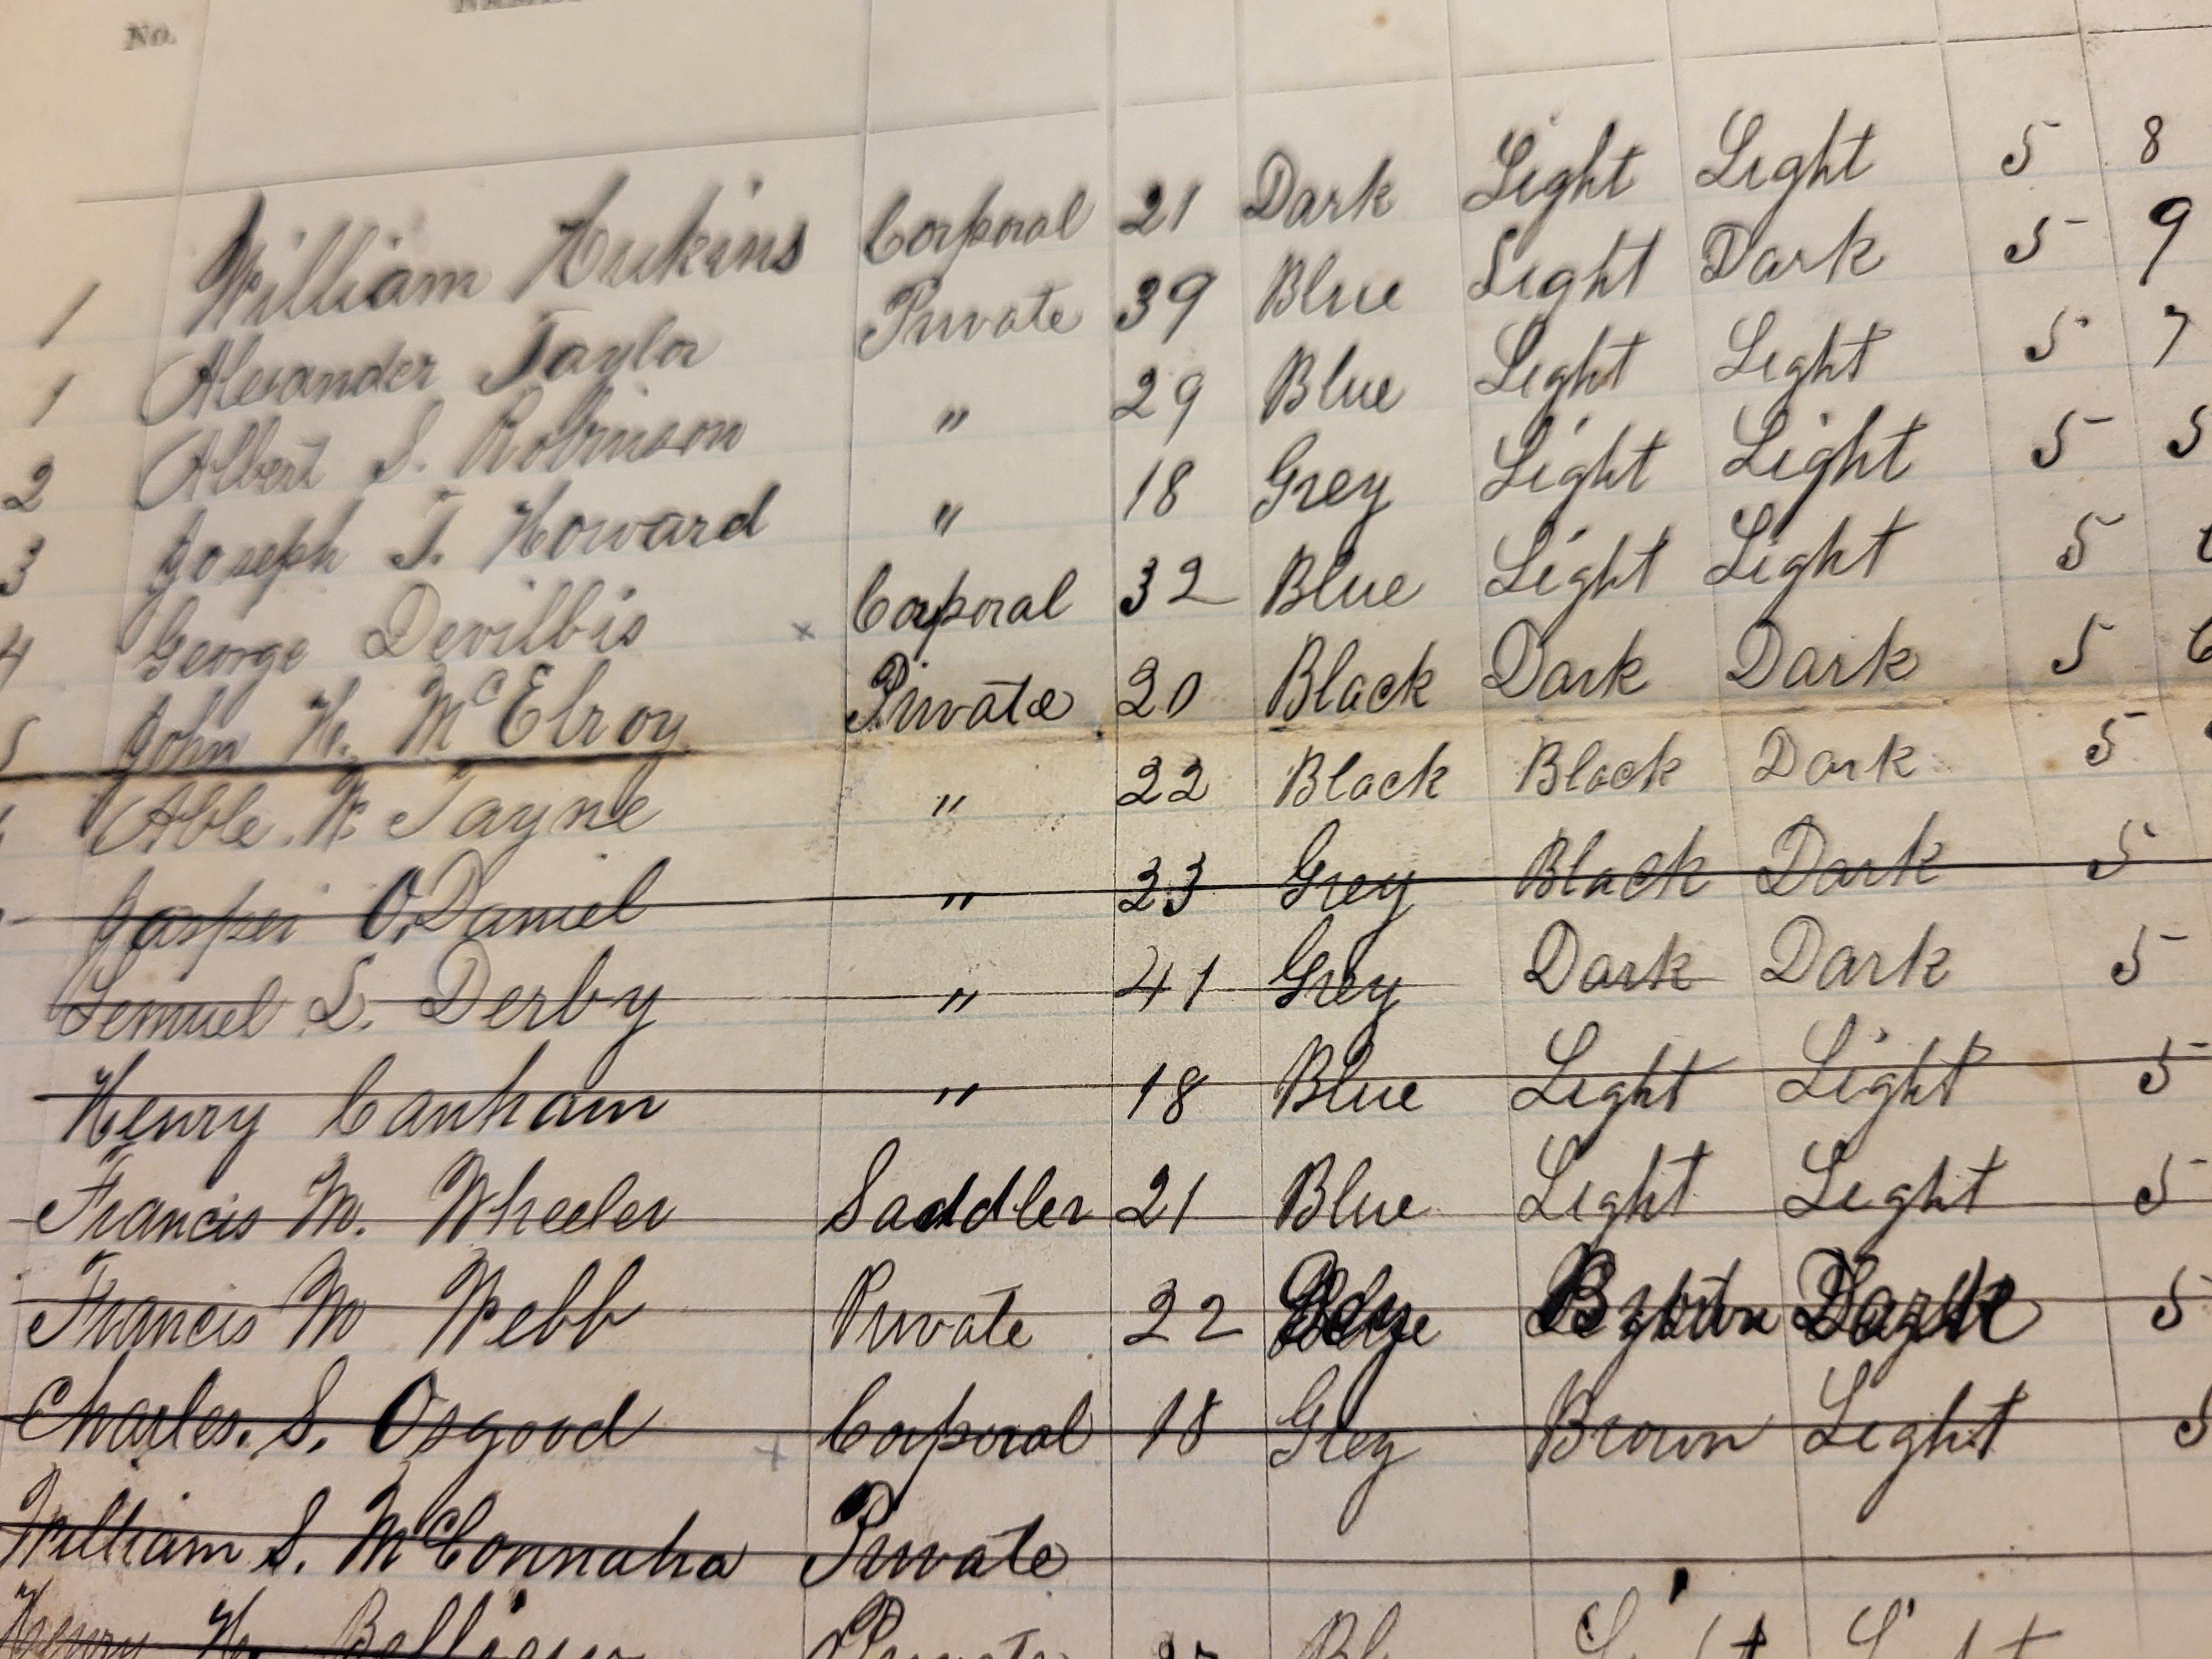 No.
1 William Hukins Corporal 21 Dark Light Light 5 8
1 Alexander Taylor Private 39 Blue Light Dark 5 9
2 Albert S. Robinson " 29 Blue Light Light 5 7
3 Joseph T. Howard " 18 Grey Light Light 5 5
4 George Devilbis x Corporal 32 Blue Light Light 5
5 John H. McElroy Private 20 Black Dark Dark 5
Able W. Tayne " 22 Black Black Dark 5
Jasper O.Daniel " 23 Grey Black Dark 5
Lemuel L. Derby " 41 Grey Dark Dark 5
Henry Canham " 18 Blue Light Light 5
Francis M. Wheeler Saddler 21 Blue Light Light 5
Francis M Webb Private 22 Dark 5
Charles. S. Osgood x Corporal 18 Grey Brown Light 5
William S. McConnaha Private
Henry H. Private